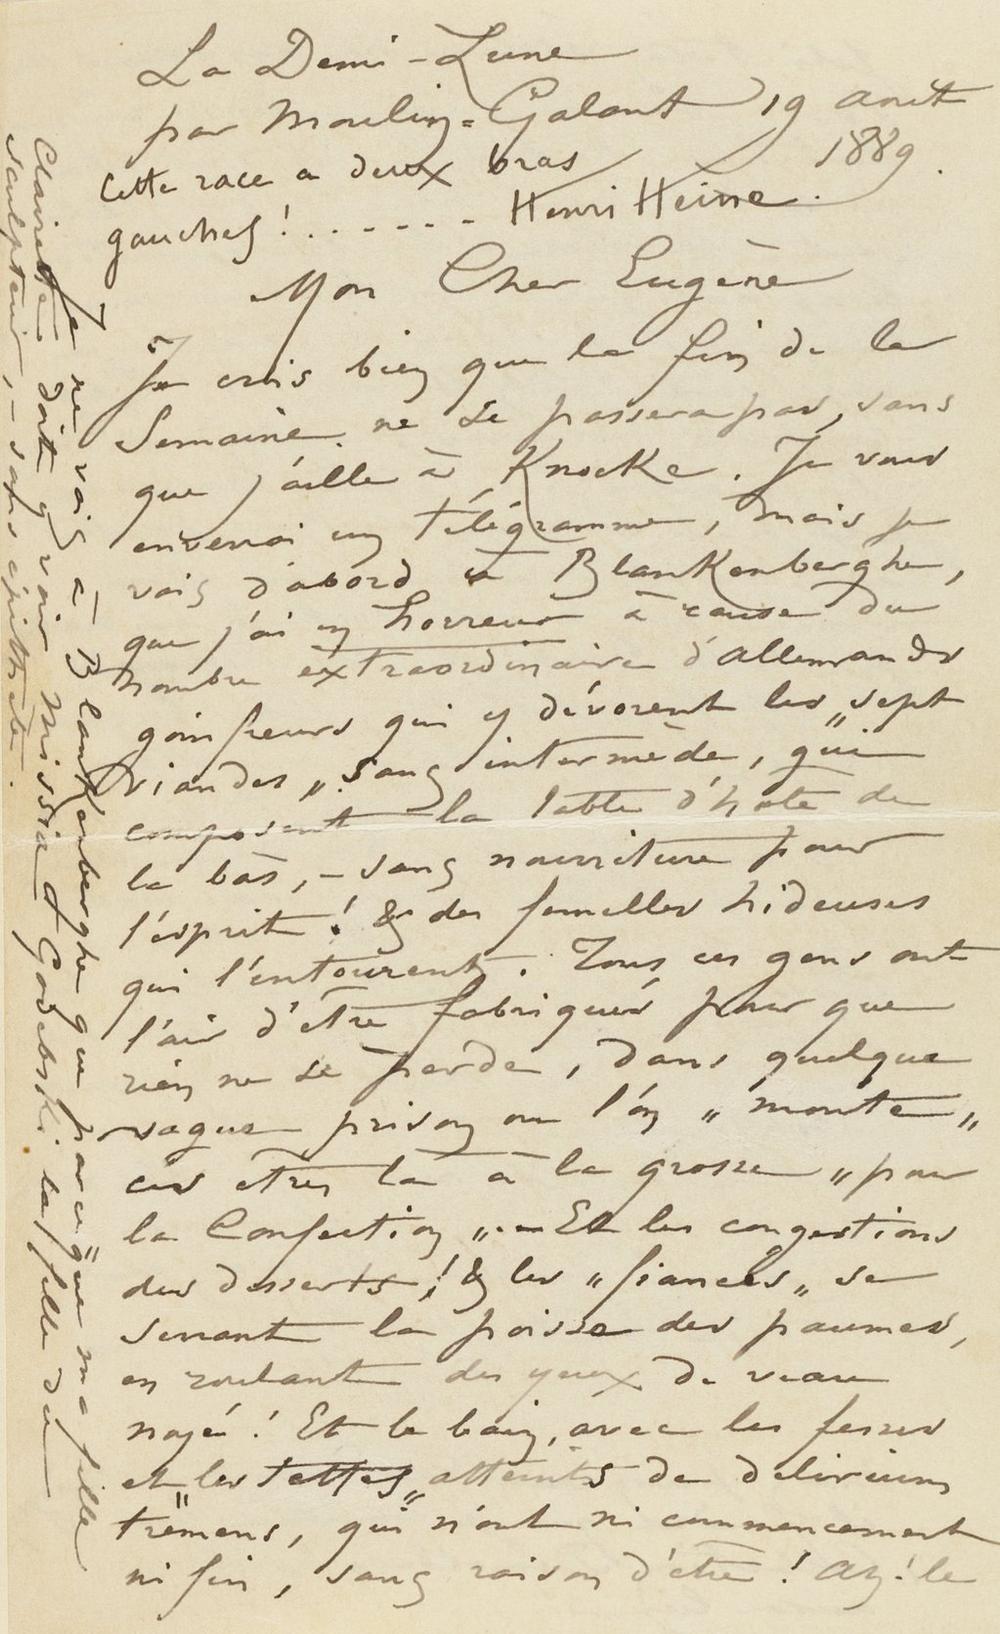 La Demi-Lune
par Moulin-Galant 19 août
1889.
Cette race a deux bras
gauches!...... Henri Heine.
Mon Cher Eugène
Je crois bien que la fin de la
Semaine ne se passera pas, sans
que j'aille à Knocke. Je vous
enverrai un télégramme, mais je
vais d'abord à Blankenberghe,
que j'ai en horreur à cause du
nombre extraordinaire d'allemands
goinfreurs qui y dévorent les "sept
viandes" sans intermède, qui
composent la table d'hote de
là bàs, - sans nourriture pour
l'esprit! & des femelles hideuses
qui l'entourent. Tous ces gens ont
l'air d'être fabriqués pour que
rien ne se perde, dans quelque
vague prison ou l'on "monte"
ces êtres là à la grosse "pour
la Confection". - Et les congestions
des desserts! & les "fiancés" se
serrant la poisse des paumes,
en roulant des yeux de veau
noyé! Et le bain, avec les fesses
et les "tettes" atteints de delirium
tremens, qui n'ont ni commencement
ni fin, sans raison d'être! Ah! le
Je ne vais à Blankenberghe que parce que ma fille
Claire doit y voir Missia Godebski la fille du
sculpteur, - sans épithète.